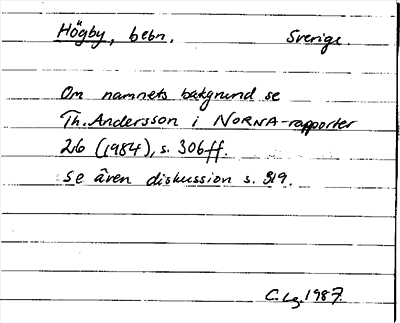 Högby, bebn. Sverige.
Om namnets bakgrund se
Th. Andersson i NORNA-rapporter
26 (1984), s. 306ff.
Se även diskussion s. 319.
C. Lg. 1987.